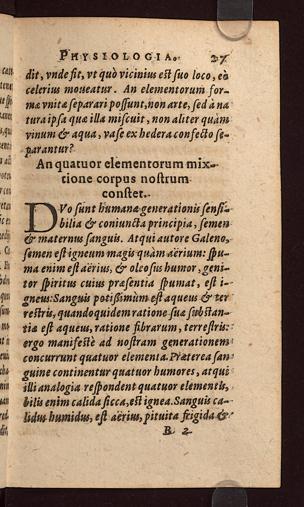 PHYSIOLOGIA. 27
dit, vnde fit, vt quò vicinius est suo loco, eò
celerius moueatur. An elementorum for-
mæ vnitæ separari possunt, non arte, sed à na
tura ipsa quæ illa miscuit, non aliter quàm
vinum & aqua, vase ex hedera confecto se-
parantur?
An quatuor elementorum mix-
tione corpus nostrum
constet.
DVo sunt humanæ generationis sensi-
bilia & coniuncta principia, semen
& maternus sanguis. Atqui autore Galeno,
semen est igneum magis quàm aërium: spu-
ma enim est aërius, & oleosus humor, geni-
tor spiritus cuius præsentia spumat, est i-
gneus: Sanguis potissimùm est aqueus & ter
restris, quandoquidem ratione suæ substan-
tiæ est aqueus, ratione fibrarum, terrestris:
ergo manifestè ad nostram generationem
concurrunt quatuor elementa. Præterea san
guine continentur quatuor humores, atqui
illi analogia respondent quatuor elementis,
bilis enim calida sicca, est ignea. Sanguis ca-
lidus humidus, est aërius, pituita frigida &
B 2